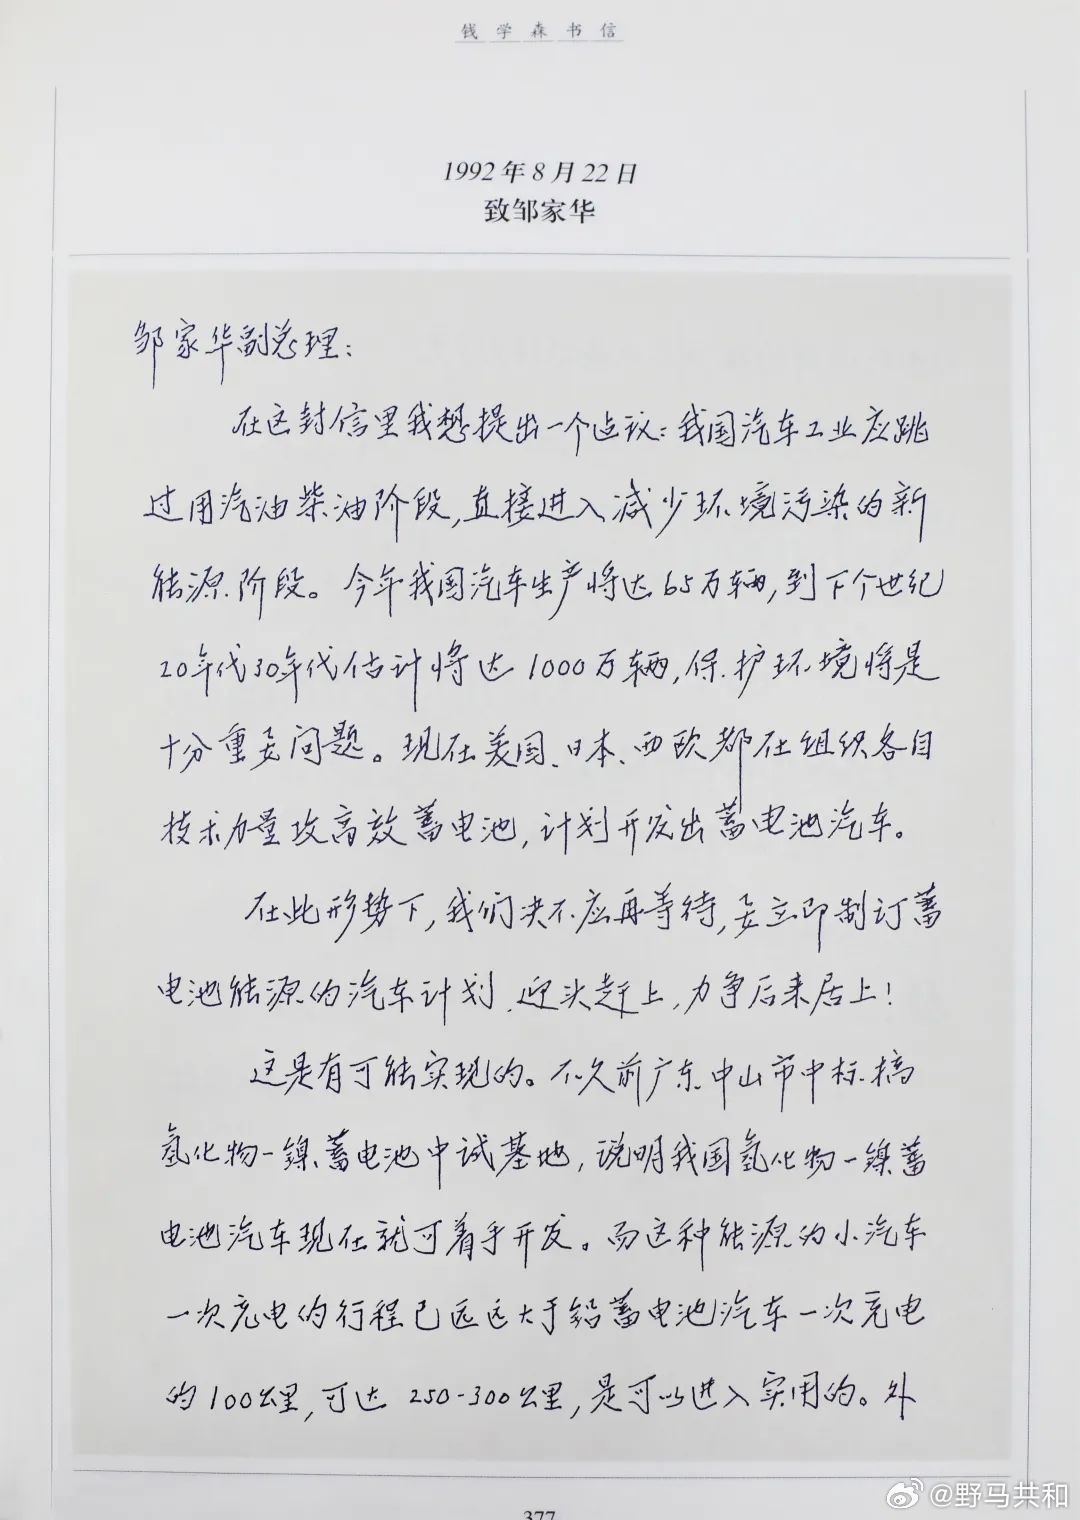 钱学森书信
1992年8月22日
致邹家华
邹家华副总理：
在这封信里我想提出一个建议：我国汽车工业应跳
过用汽油柴油阶段，直接进入减少环境污染的新
能源阶段。今年我国汽车生产将达65万辆，到下个世纪
20年代30年代估计将达1000万辆，保护环境将是
十分重要问题。现在美国、日本、西欧都在组织各自
技术力量攻高效蓄电池，计划开发出蓄电池汽车。
在此形势下，我们决不应再等待，要立即制订蓄
电池能源的汽车计划，迎头赶上，力争后来居上！
这是有可能实现的。不久前广东中山市中标搞
氢化物—镍蓄电池中试基地，说明我国氢化物—镍蓄
电池汽车现在就可着手开发。而这种能源的小汽车
一次充电的行程已远远大于铅蓄电池汽车一次充电
的100公里，可达250-300公里，是可以进入实用的。外
377
@野马共和